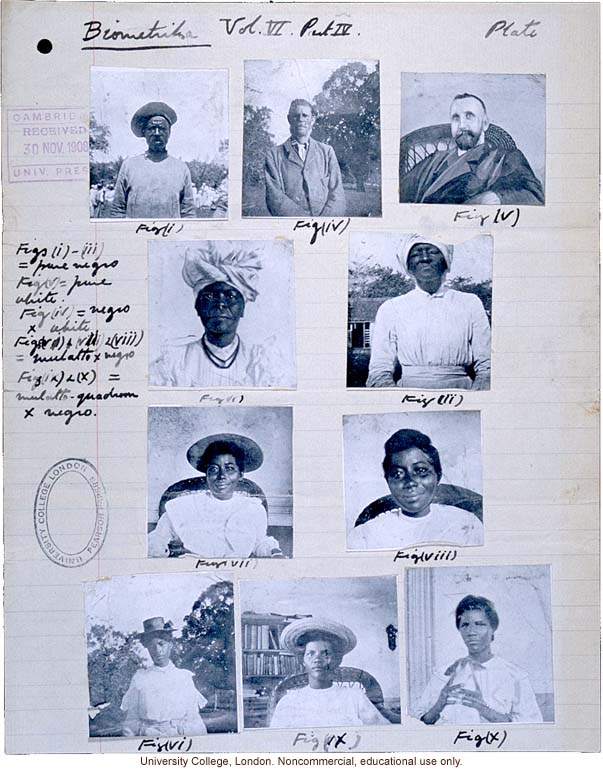 Biometrika Vol. VI. Part IV. Plate
CAMBRIDGE
RECEIVED
30 NOV. 1908
UNIV. PRESS
Fig(i)
Fig(iv)
Fig(v)
Figs(i)-(iii)
= pure negro
Fig(v) = pure
white.
Fig(iv) = negro
x white
= mulatto x negro
Figs(ix)&(x) =
mulatto-quadroon
x negro.
Fig(ii)
Fig(vii)
Fig(viii)
UNIVERSITY COLLEGE LONDON
PEARSON
Fig(vi)
Fig(ix)
Fig(x)
University College, London. Noncommercial, educational use only.